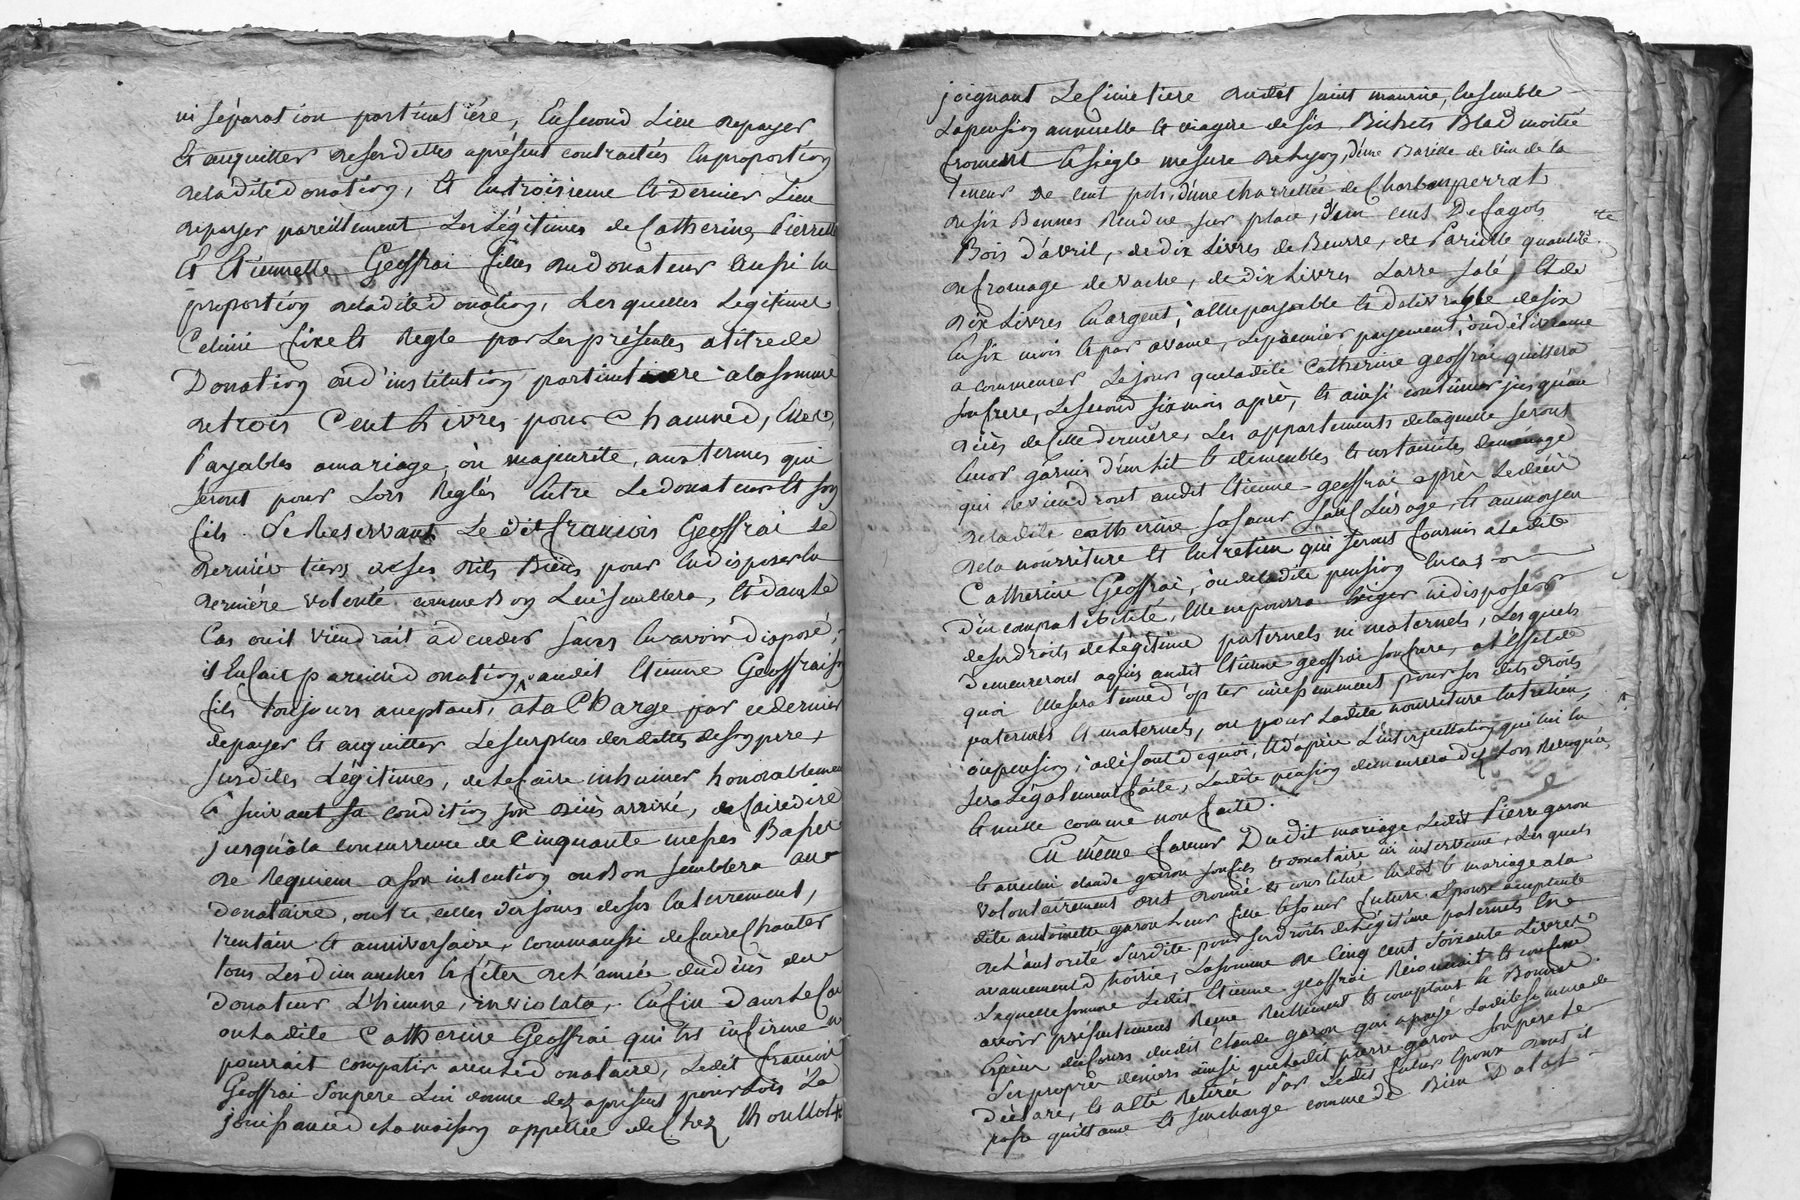 ni séparation partimetière, En second Lieu de payer
Et acquitter de ses dettes aprésent contractées En proportion
de ladite donation, Et En troisieme Et Dernier Lieu
de payer pareillement Les Légitimes de Catherine, Pierrette
Et Etiennette Geoffrai filles du donateur aussi En
proportion de ladite donation, Lesquelles Legitimes
Celuici fixe Et Regle par Les présentes atitre de
Donation ou d'institution ala somme
de trois Cent Livres pour Chacune,
Payables amariage, ou majorité, aux termes qui
seront pour Lors Reglés Entre Le donateur Et son
fils. Se Reservant Le dit francois Geoffrai Le
dernier tiers de ses dits Biens pour En disposer En
derniére volonté comme Bon Lui semblera, Et dans le
Cas ou il viendrait à deceder sans En avoir disposé,
il En fait pareille donation audit Etienne Geoffrai son
fils toujours acceptant, ala Charge par ce dernier
de payer Et acquitter Le surplus des dettes de son pere,
susdites Légitimes, de Le faire inhumer honorablement
Et suivant sa condition son décès arrivé, de faire dire
jusqu'ala concurrence de Cinquante messes Basses
de Requiem a son intention ou Bon semblera au
donataire, outre celles des jours de ses Enterrement,
trentain Et anniversaire, comme aussi de faire Chanter
tous Les dimanches Et fêtes de L'année du décès du
donateur L'himne, inviolata, Enfin dans le Cas
ou Ladite Catherine Geoffrai qui Est infirme ne
pourrait compatir avec Le donataire, Ledit francois
Geoffrai son pere Lui donne dez aprésent pour Lors La
jouissance de La maison appellée de Chez
joignant Le Cimetiere dudit saint maurice, Ensemble
La pension annuelle Et viagere de six Bichets Bled moitié
froment Et seigle mesure de Lyon, d'une Barille de vin de la
teneur de cent pots, d'une charrettée de Charbon
de six Bennes Rendue sur place, d'un cent De fagots
Bois d'avril, de dix Livres de Beurre, de Pareille quantité
de fromage de vache, de dix Livres Larre salé, Et de
dix Livres En argent, alle payable Et delivrable de six
En six mois Et par avance, Le premier payement, ou délivrance
a commencer Le jour que ladite Catherine Geoffrai quittera
son frere, Le second six mois après, Et ainsi continuer jusqu'au
décès de cette derniére, Les appartements de laquelle seront
garnis d'un Lit Et de meubles Et ustanciles de ménage
qui Reviendront audit Etienne Geoffrai après Le décès
de ladite catherine sa sœur sauf L'usage, Et au moyen
de la nourriture Et Entretien qui seront fournis a ladite
Catherine Geoffrai, ou de ladite pension En cas
d'incompatibilité, Elle ne pourra Exiger ni disposer
de ses droits de Légitime paternels ni maternels, Lesquels
demeureront aquis audit Etienne Geoffrai son frere, a L'effet de
quoi Elle sera tenue d'opter incessamment pour ses dits droits
paternels Et maternels, ou pour Ladite nourriture Entretien,
ou pension, à défaut de quoi, Et d'après L'interpellation qui lui En
sera Légalement faite, Ladite pension demeurera dez Lors Revoquée
Et nulle comme non faite.
En même faveur Dudit mariage Ledit Pierre garon
Et claude garon son fils Et donataire ici intervenu, Lesquels
volontairement ont donné Et constitué En dot Et mariage a la
dite antoinette garon Leur fille Et sœur future Epouse acceptante
de L'autorité susdite, pour ses droits de Légitime paternels En
avancement d'hoirie, La somme de Cinq cent soixante Livres
Laquelle somme Ledit Etienne geoffrai Réconnait Et confesse
avoir présentement Reçue Réellement Et comptant En Bonnes
Espèces du Cours dudit claude garon qui a payé Ladite somme de
ses propres deniers ainsi que Ledit pierre garon son pere Le
déclare, Et a été Retirée Par Ledit futur Epoux dont il
passe quittance Et surcharge comme de Bien Dotal